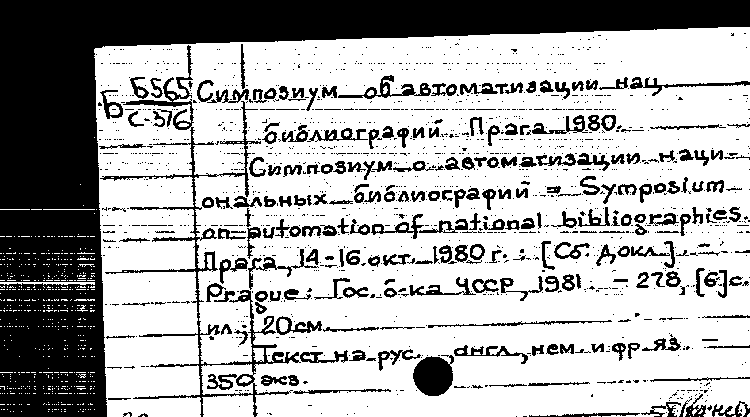 Б Б565 Симпозиум об автоматизации нац.
С-376
библиографий. Прага. 1980.
Симпозиум о автоматизации наци-
ональных библиографий = Symposium
on automation of national bibliographies.
Прага, 14-16 окт. 1980 г. : [Сб. докл.]. -
Prague: Гос. б-ка ЧССР, 1981. - 278, [6] с.
ил.; 20 см.
Текст на рус., англ., нем. и фр. яз. -
350 экз.